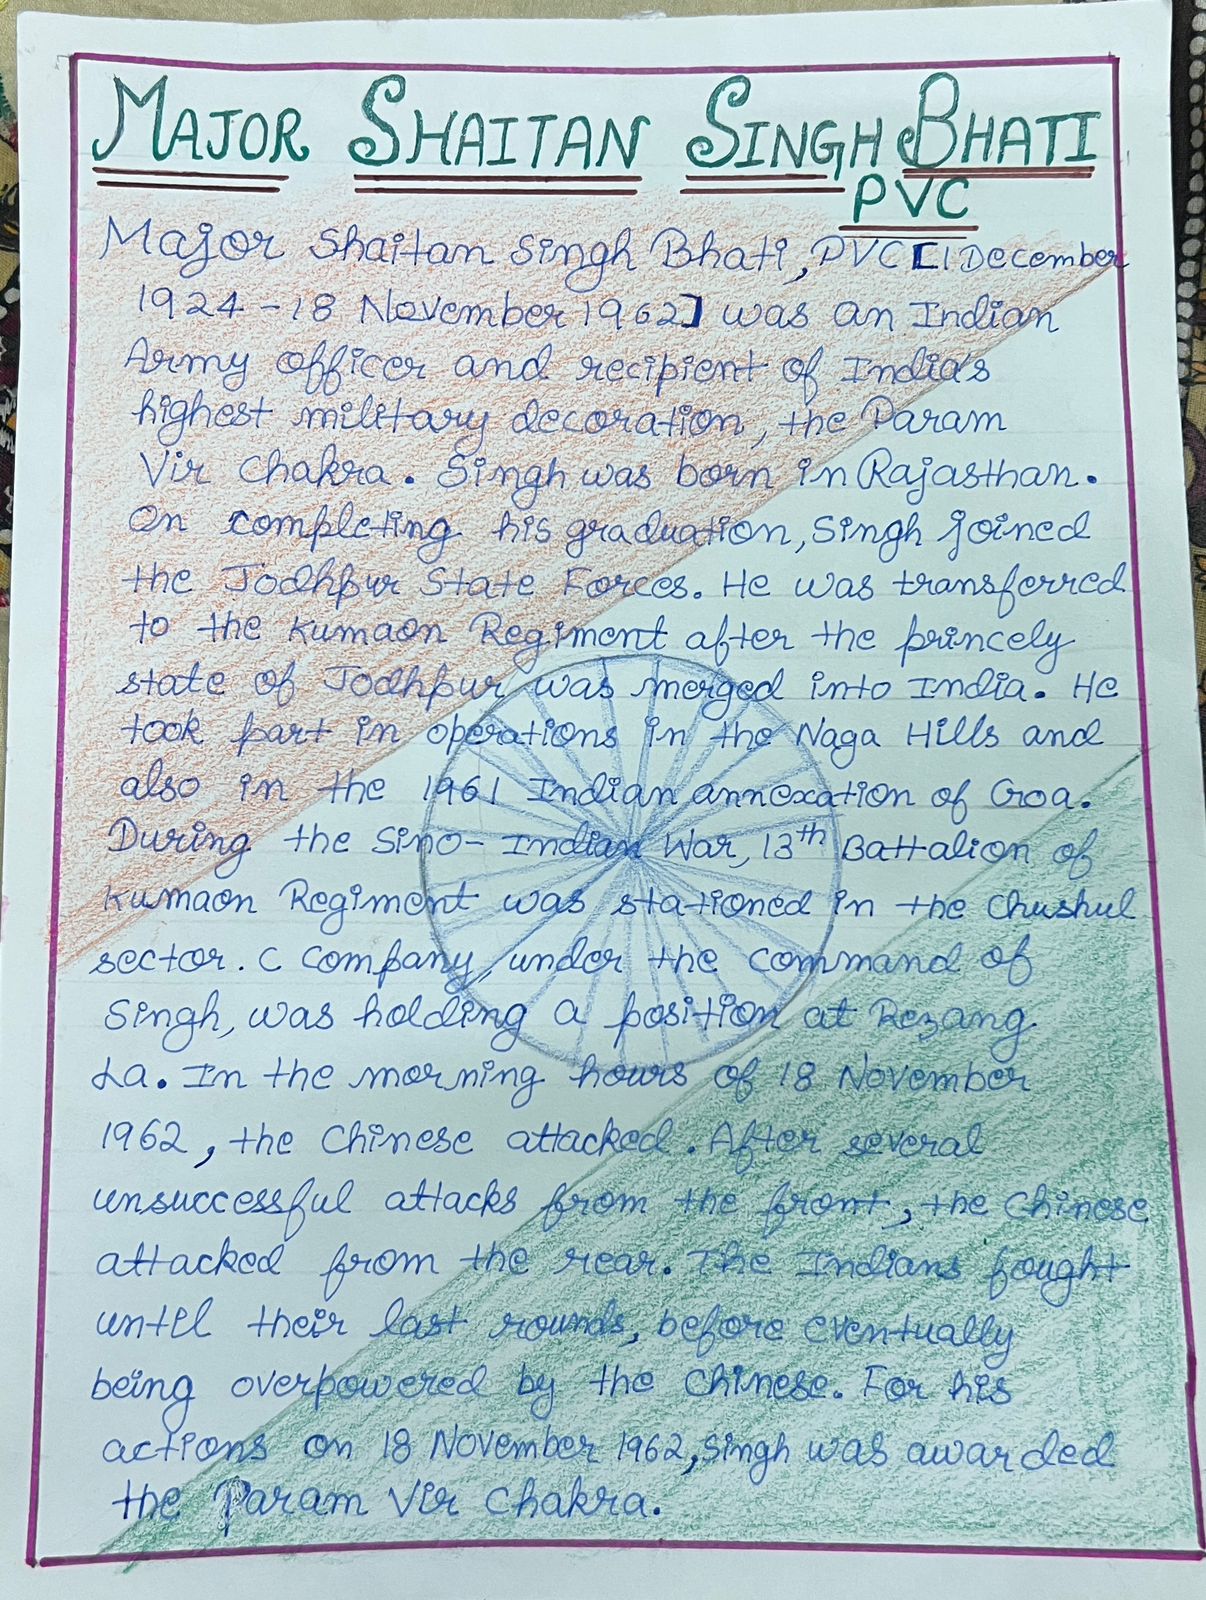 MAJOR SHAITAN SINGH BHATI
PVC
Major Shaitan Singh Bhati, PVC [1 December
1924 - 18 November 1962] was an Indian
Army officer and recipient of India's
highest military decoration, the Param
Vir Chakra. Singh was born in Rajasthan.
On completing his graduation, Singh joined
the Jodhpur State Forces. He was transferred
to the Kumaon Regiment after the princely
state of Jodhpur was merged into India. He
took part in operations in the Naga Hills and
also in the 1961 Indian annexation of Goa.
During the Sino-Indian War, 13th Battalion of
Kumaon Regiment was stationed in the Chushul
sector. C Company, under the command of
Singh, was holding a position at Rezang
La. In the morning hours of 18 November
1962, the Chinese attacked. After several
unsuccessful attacks from the front, the Chinese
attacked from the rear. The Indians fought
until their last rounds, before eventually
being overpowered by the Chinese. For his
actions on 18 November 1962, Singh was awarded
the Param Vir Chakra.